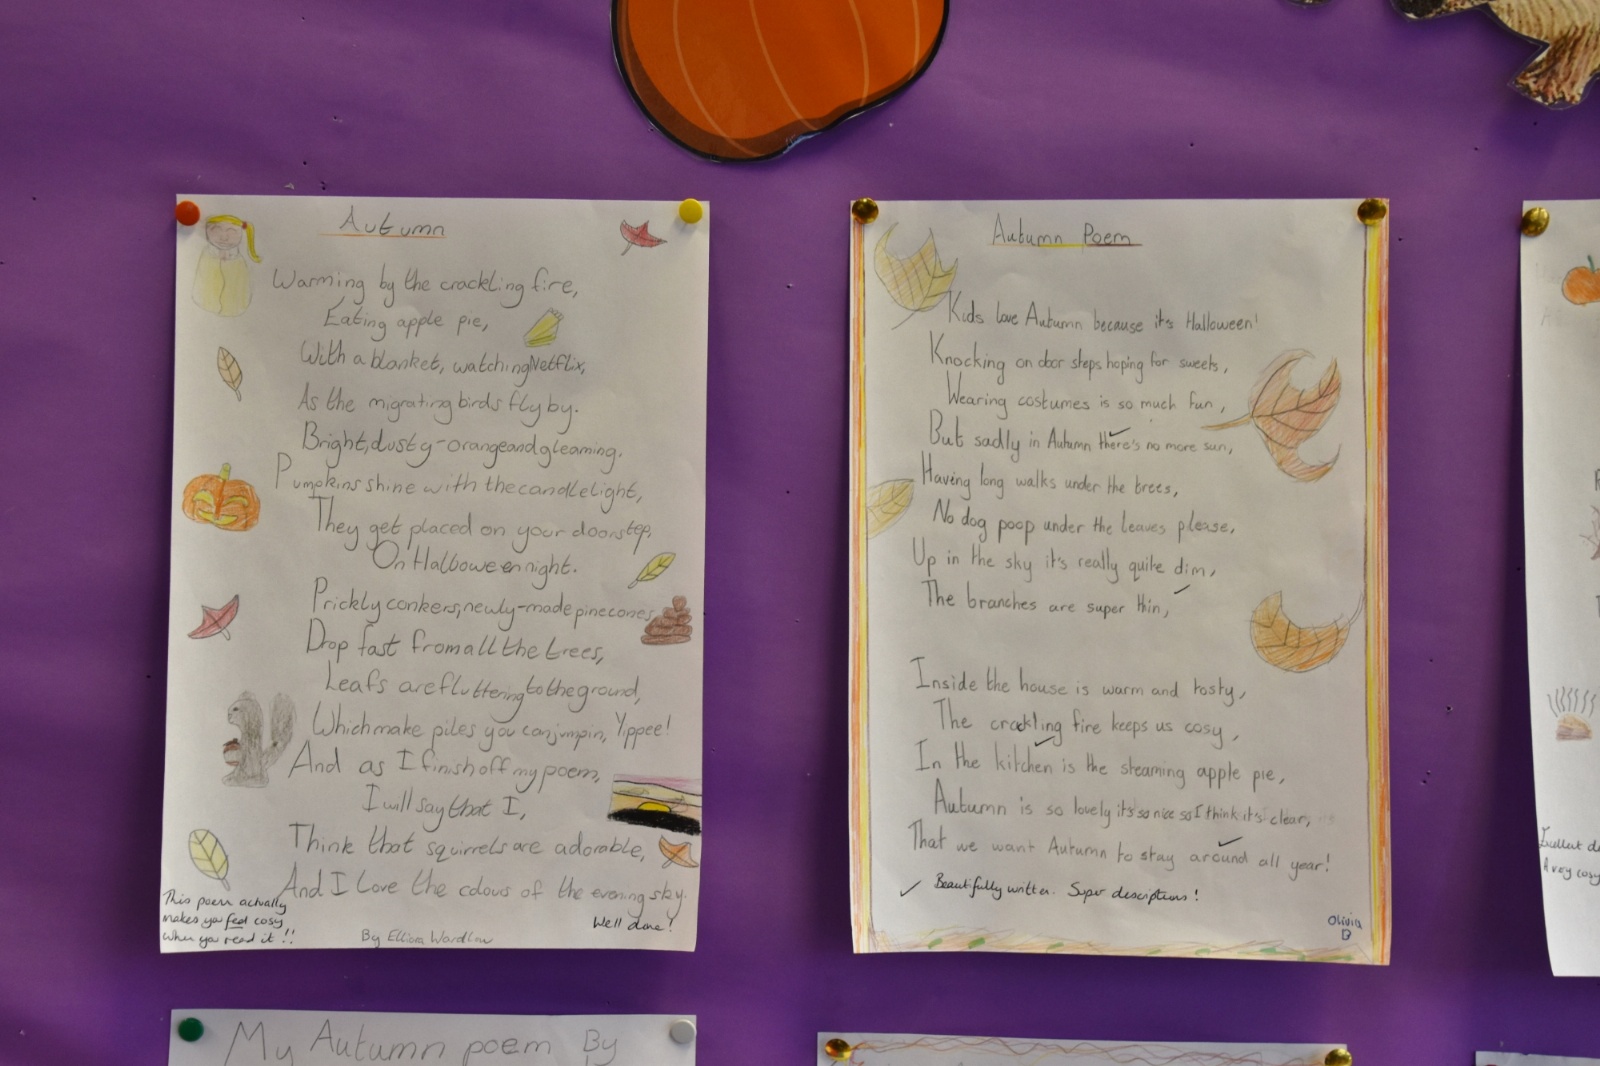 Autumn
Warming by the crackling fire,
Eating apple pie,
With a blanket, watching Netflix,
As the migrating birds fly by.
Bright, dusty-orange and gleaming.
Pumpkins shine with the candlelight,
They get placed on your doorstep,
On Halloween night.
Prickly conkers, newly-made pinecones,
Drop fast from all the trees,
Leafs are fluttering to the ground,
Which make piles you can jump in, Yippee!
And as I finish off my poem,
I will say that I,
Think that squirrels are adorable,
And I Love the colours of the evening sky.
This poem actually
makes you feel cosy
when you read it!!
Well done!
By Elliora Wardlaw
Autumn Poem
Kids love Autumn because it's Halloween!
Knocking on door steps hoping for sweets,
Wearing costumes is so much fun,
But sadly in Autumn there's no more sun,
Having long walks under the trees,
No dog poop under the leaves please,
Up in the sky it's really quite dim,
The branches are super thin,
Inside the house is warm and tosty,
The crackling fire keeps us cosy,
In the kitchen is the steaming apple pie,
Autumn is so lovely it's so nice so I think it's clear,
That we want Autumn to stay around all year!
Beautifully written. Super descriptions!
Olivia
B
A very cosy
My Autumn poem By